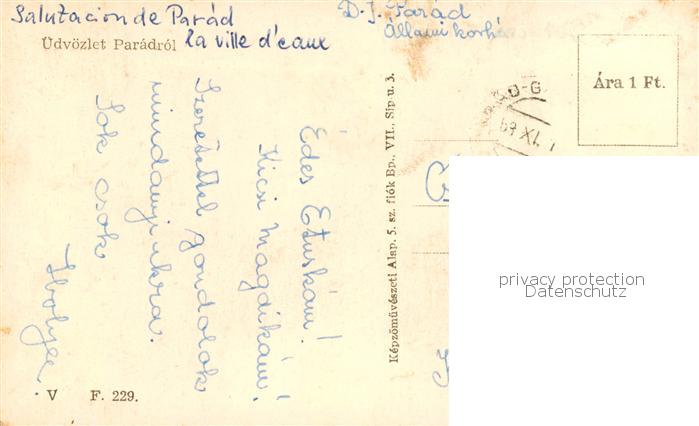 Salutacion de Parád
Üdvözlet Parádról la ville d'eaux
D. J. Parád
Állami kórhá
Édes Etuskám!
Kicsi Magdikám!
Szeretettel gondolok
mindannyiukra.
Sok csók
Ibolya
V F. 229.
Képzőművészeti Alap. 5. sz. fiók Bp., VII., Síp u. 3.
Ára 1 Ft.
XI.
privacy protection
Datenschutz